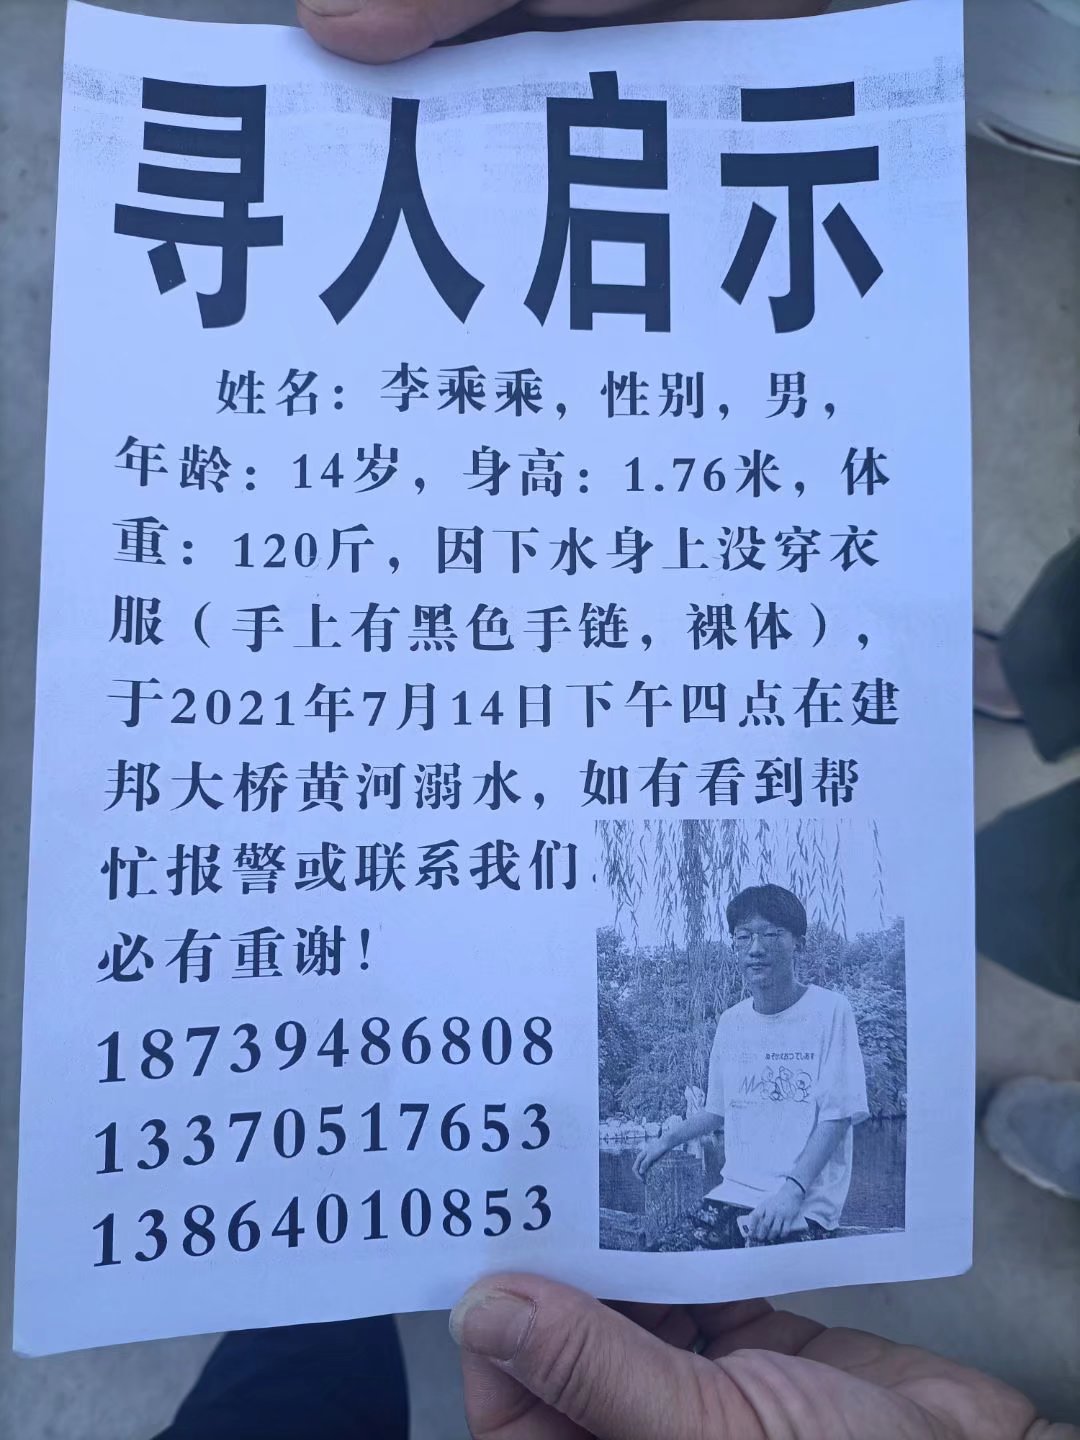 寻人启示
姓名：李乘乘，性别，男，
年龄：14岁，身高：1.76米，体
重：120斤，因下水身上没穿衣
服（手上有黑色手链，裸体），
于2021年7月14日下午四点在建
邦大桥黄河溺水，如有看到帮
忙报警或联系我们
必有重谢！
18739486808
13370517653
13864010853